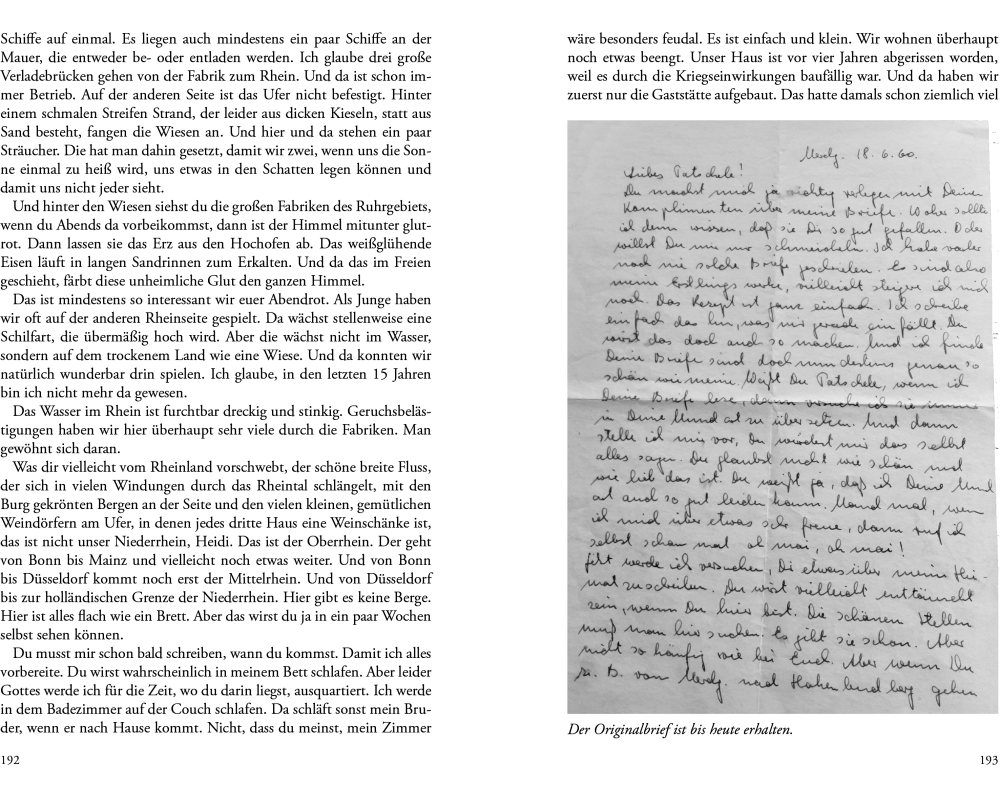 Schiffe auf einmal. Es liegen auch mindestens ein paar Schiffe an der
Mauer, die entweder be- oder entladen werden. Ich glaube drei große
Verladebrücken gehen von der Fabrik zum Rhein. Und da ist schon im-
mer Betrieb. Auf der anderen Seite ist das Ufer nicht befestigt. Hinter
einem schmalen Streifen Strand, der leider aus dicken Kieseln, statt aus
Sand besteht, fangen die Wiesen an. Und hier und da stehen ein paar
Sträucher. Die hat man dahin gesetzt, damit wir zwei, wenn uns die Son-
ne einmal zu heiß wird, uns etwas in den Schatten legen können und
damit uns nicht jeder sieht.
Und hinter den Wiesen siehst du die großen Fabriken des Ruhrgebiets,
wenn du Abends da vorbeikommst, dann ist der Himmel mitunter glut-
rot. Dann lassen sie das Erz aus den Hochofen ab. Das weißglühende
Eisen läuft in langen Sandrinnen zum Erkalten. Und da das im Freien
geschieht, färbt diese unheimliche Glut den ganzen Himmel.
Das ist mindestens so interessant wir euer Abendrot. Als Junge haben
wir oft auf der anderen Rheinseite gespielt. Da wächst stellenweise eine
Schilfart, die übermäßig hoch wird. Aber die wächst nicht im Wasser,
sondern auf dem trockenem Land wie eine Wiese. Und da konnten wir
natürlich wunderbar drin spielen. Ich glaube, in den letzten 15 Jahren
bin ich nicht mehr da gewesen.
Das Wasser im Rhein ist furchtbar dreckig und stinkig. Geruchsbeläs-
tigungen haben wir hier überhaupt sehr viele durch die Fabriken. Man
gewöhnt sich daran.
Was dir vielleicht vom Rheinland vorschwebt, der schöne breite Fluss,
der sich in vielen Windungen durch das Rheintal schlängelt, mit den
Burg gekrönten Bergen an der Seite und den vielen kleinen, gemütlichen
Weindörfern am Ufer, in denen jedes dritte Haus eine Weinschänke ist,
das ist nicht unser Niederrhein, Heidi. Das ist der Oberrhein. Der geht
von Bonn bis Mainz und vielleicht noch etwas weiter. Und von Bonn
bis Düsseldorf kommt noch erst der Mittelrhein. Und von Düsseldorf
bis zur holländischen Grenze der Niederrhein. Hier gibt es keine Berge.
Hier ist alles flach wie ein Brett. Aber das wirst du ja in ein paar Wochen
selbst sehen können.
Du musst mir schon bald schreiben, wann du kommst. Damit ich alles
vorbereite. Du wirst wahrscheinlich in meinem Bett schlafen. Aber leider
Gottes werde ich für die Zeit, wo du darin liegst, ausquartiert. Ich werde
in dem Badezimmer auf der Couch schlafen. Da schläft sonst mein Bru-
der, wenn er nach Hause kommt. Nicht, dass du meinst, mein Zimmer
192
wäre besonders feudal. Es ist einfach und klein. Wir wohnen überhaupt
noch etwas beengt. Unser Haus ist vor vier Jahren abgerissen worden,
weil es durch die Kriegseinwirkungen baufällig war. Und da haben wir
zuerst nur die Gaststätte aufgebaut. Das hatte damals schon ziemlich viel
18. 6. 60.
Liebes Patschele!
Du machst mich ja richtig verlegen mit Deinen
Komplimenten über meine Briefe. Woher sollte
ich denn wissen, daß sie Dir so gut gefallen. Oder
willst Du mir nur schmeicheln. Ich habe vorher
noch nie solche Briefe geschrieben. Es sind also
meine Erstlings werke, vielleicht steigere ich mich
noch. Das Rezept ist ganz einfach. Ich schreibe
einfach das hin, was mir gerade einfällt. Du
wirst das doch auch so machen. Und ich finde
Deine Briefe sind doch mindestens genau so
schön wie meine. Weißt Du Patschele, wenn ich
Deine Briefe lese, dann versuche ich sie immer
in Deine Mundart zu übersetzen. Und dann
stelle ich mir vor, Du würdest mir das selbst
alles sagen. Du glaubst nicht wie schön und
wie lieb das ist. Du weißt ja, daß ich Deine Mund
art auch so gut leiden kann. Manchmal, wenn
ich mich über etwas sehr freue, dann ruf ich
selbst schon mal oh mai, oh mai!
Jetzt werde ich versuchen, Dir etwas über meine Hei-
mat zu schreiben. Du wirst vielleicht enttäuscht
sein, wenn Du hier bist. Die schönen Stellen
muß man hier suchen. Es gibt sie schon. Aber
nicht so häufig wie bei Euch. Aber wenn Du
z. B. von nach gehen
Der Originalbrief ist bis heute erhalten.
193